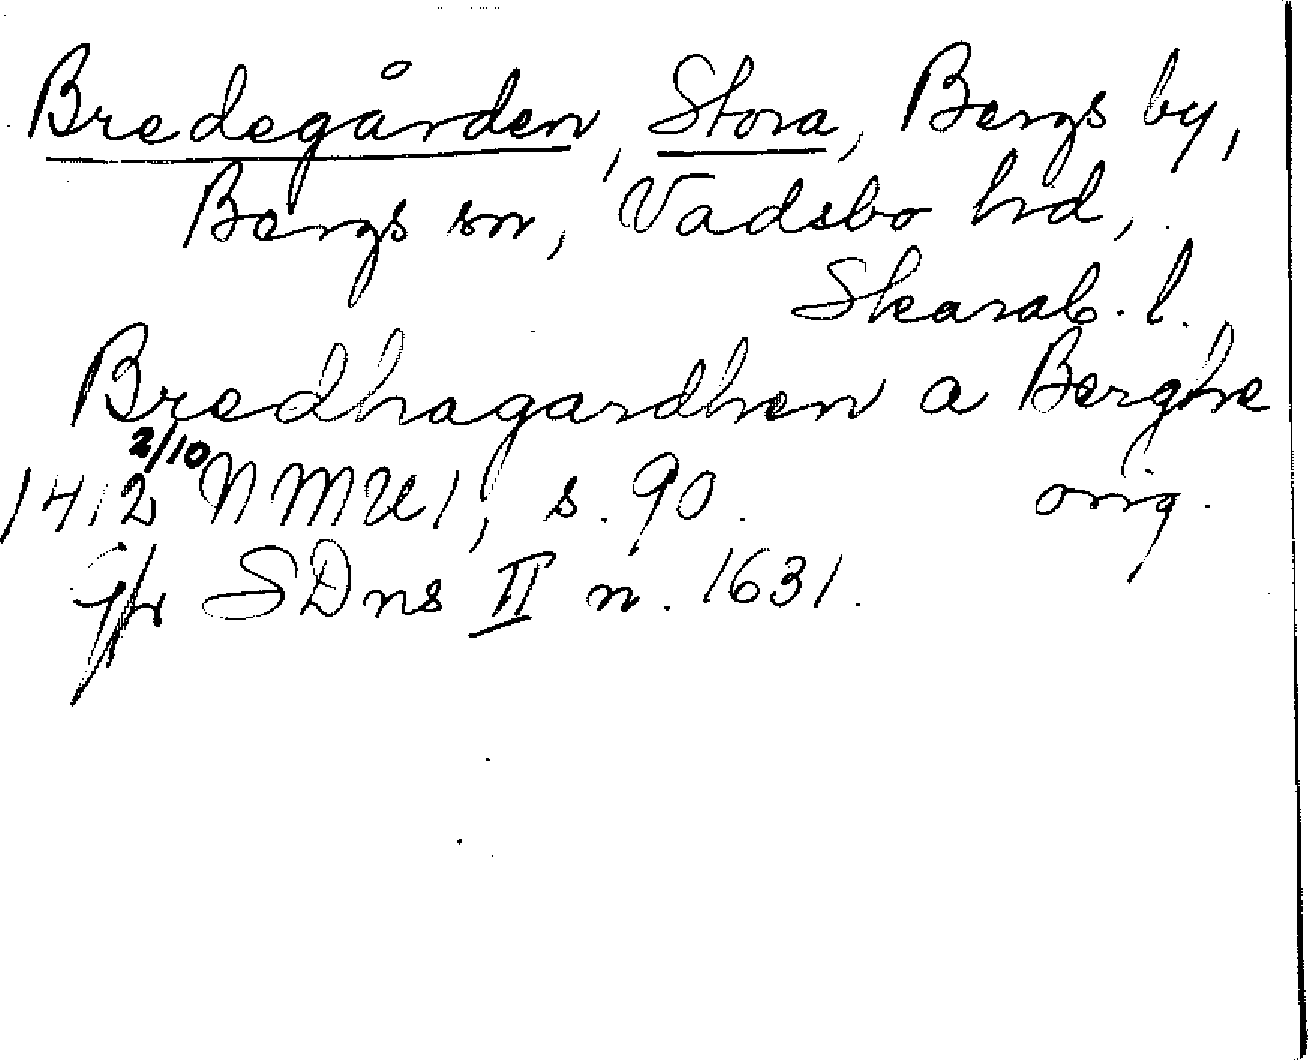 Bredegården, Stora, Bergs by,
Bergs sn, Vadsbo hd,
Skarab. l.
Bredhagardhen a Berghe
1412 2/10 NMU1, s. 90. orig.
Jfr SDns II n. 1631.